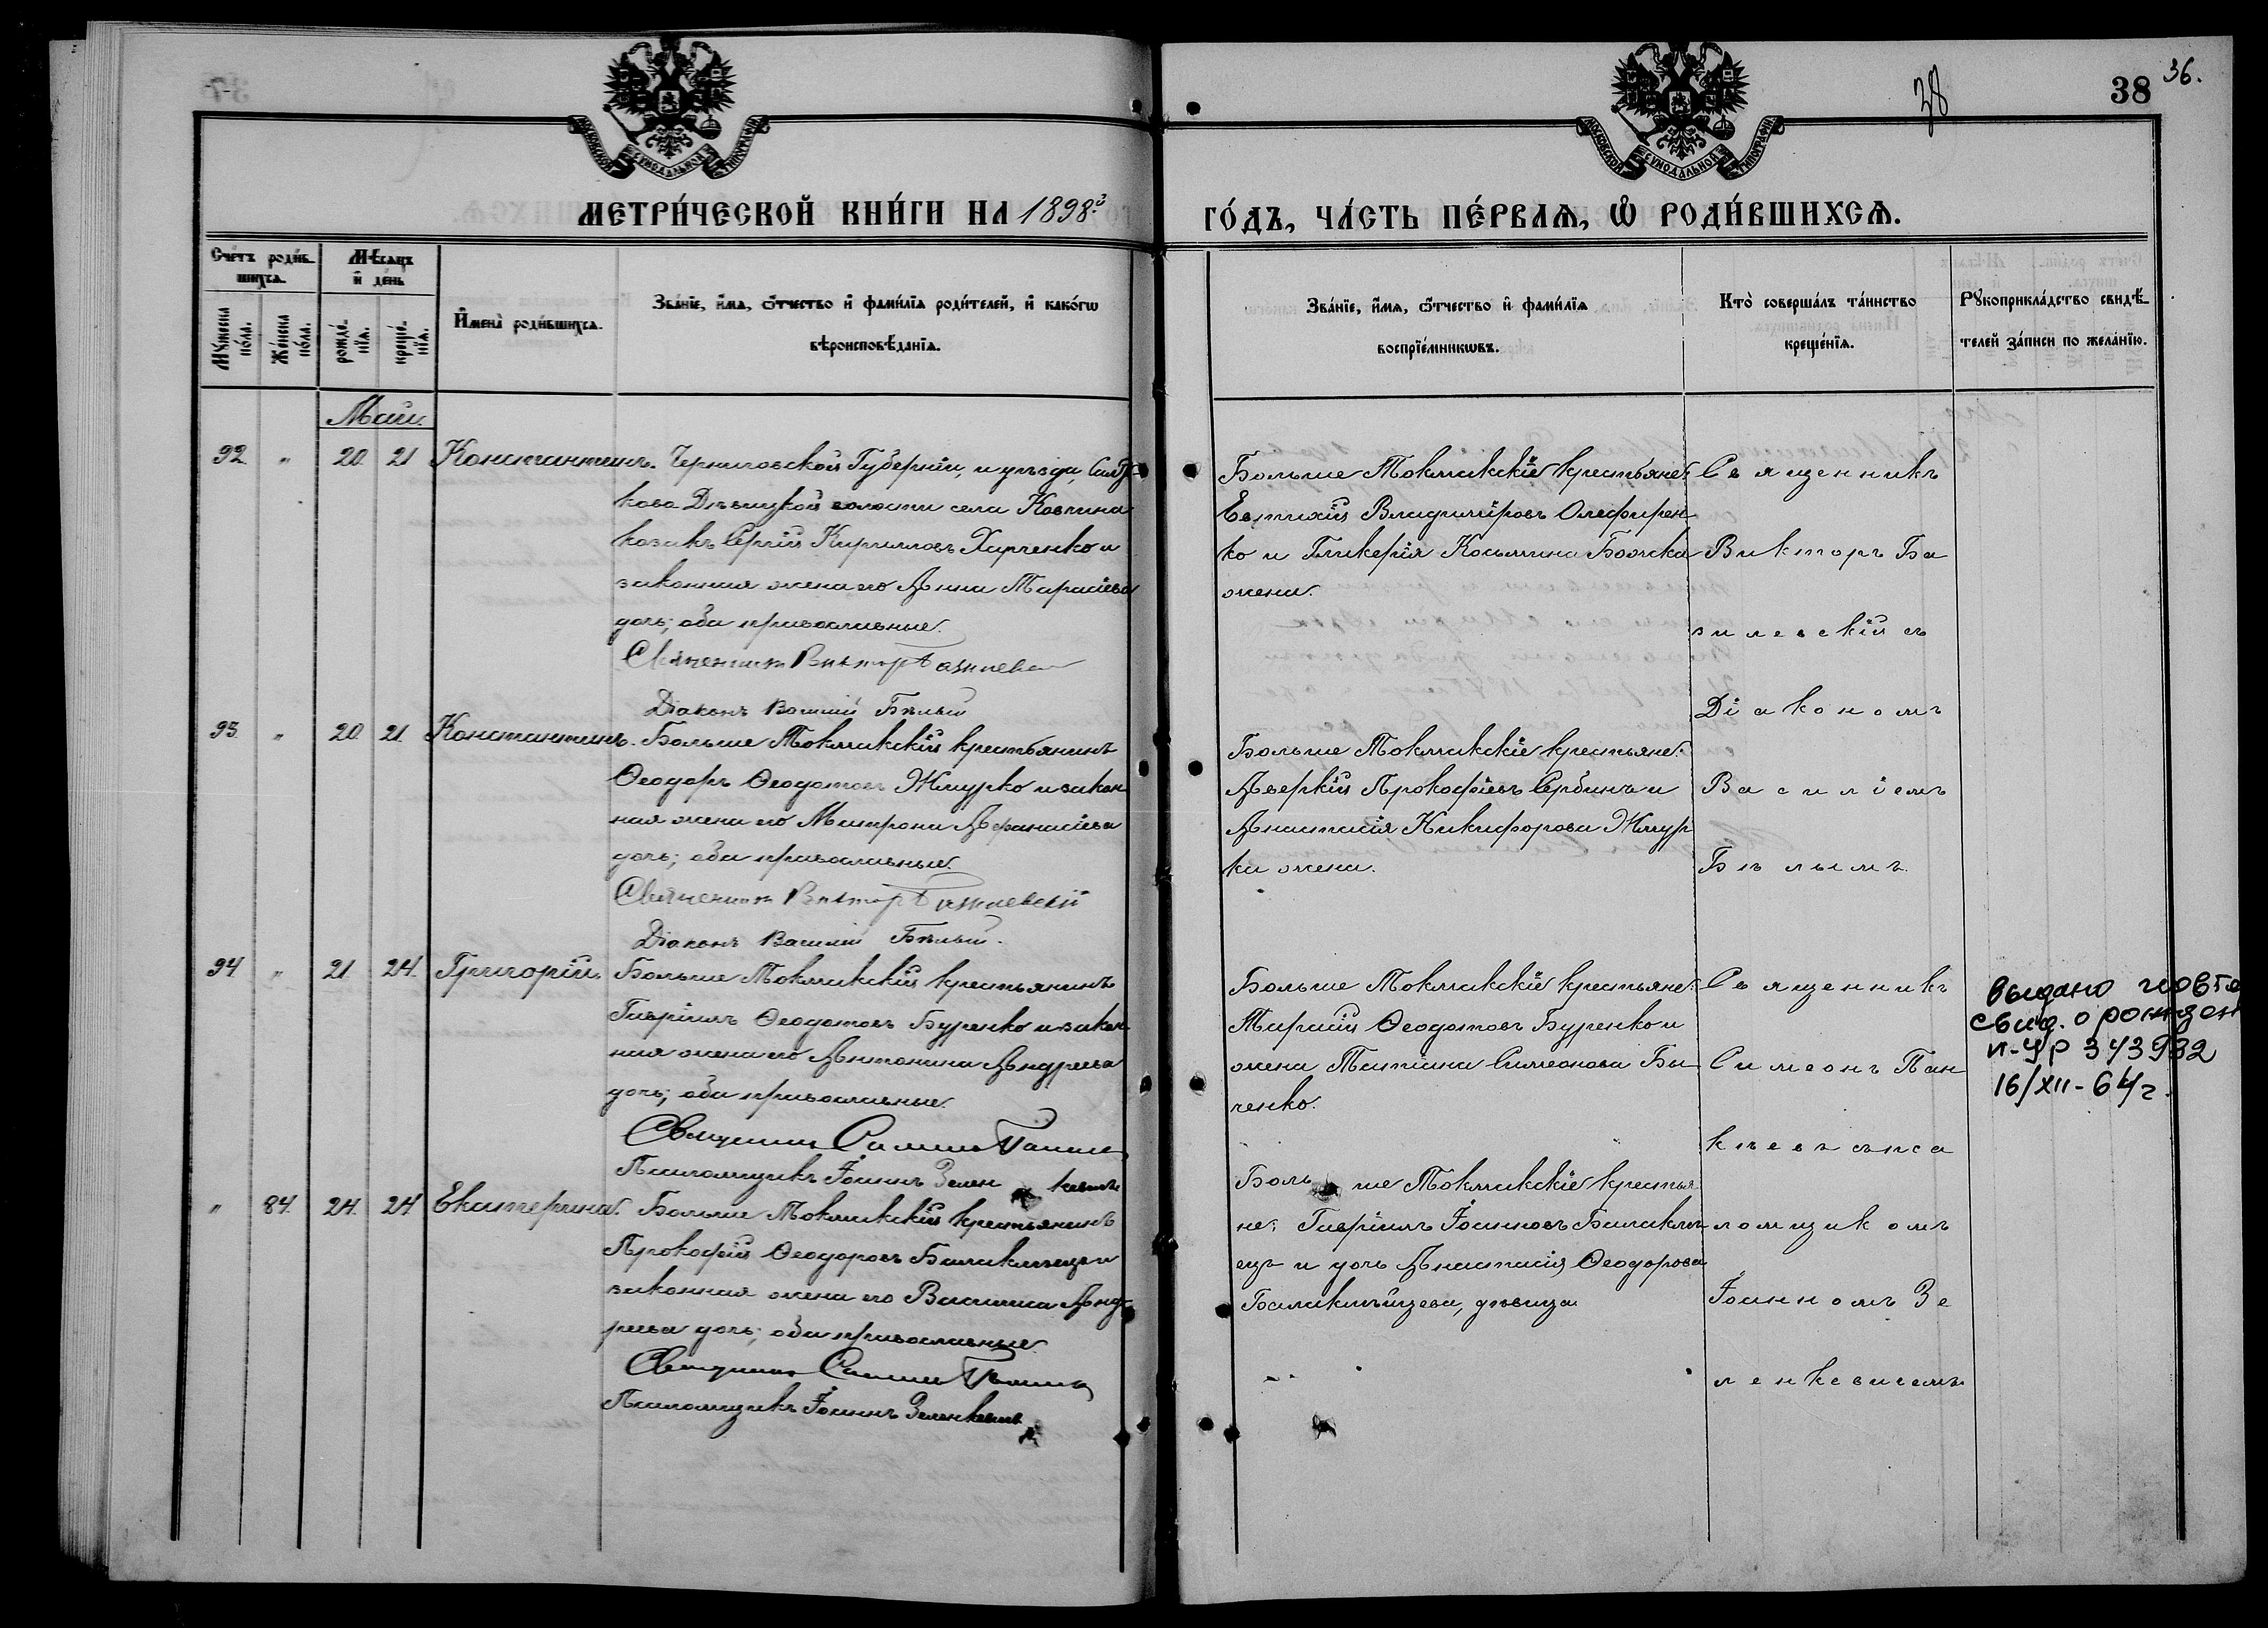 38
38
36.
МОСКОВСКОЙ СУНОДАЛЬНОЙ ТИПОГРАФІИ
МОСКОВСКОЙ СУНОДАЛЬНОЙ ТИПОГРАФІИ
МЕТРИ́ЧЕСКОЙ КНИ́ГИ НА 1898.й
ГО́ДЪ, ЧА́СТЬ ПЕ́РВАѦ, Ѡ РОДИ́ВШИХСѦ.
Сче́тъ роди́в-
шихсѧ.
Му́жеска по́ла.
Же́нска по́ла.
Мѣ́сѧцъ
и де́нь
рожде́-
нїѧ.
креще́-
нїѧ.
И҆мена̀ роди́вшихсѧ.
Зва́нїе, и҆́мѧ, ѻ҆́тчество и҆ фами́лїѧ роди́телей, и҆ како́гѡ
вѣроисповѣ́данїѧ.
Зва́нїе, и҆́мѧ, ѻ҆́тчество и҆ фами́лїѧ
воспрїе́мникѡвъ.
Кто̀ соверша́лъ та́инство
креще́нїѧ.
Рꙋкоприкла́дство свидѣ́-
телей за́писи по жела́нїю.
Май.
92. " 20. 21 Константинъ. Черниговской Губерніи, и уѣзда,
кова Дѣвицкой волости села Ковпина
козакъ Сергій Кирилловъ Харченко и
законная жена его Анна Тарасіева
дочь; оба православные.
Священникъ Викторъ Базилев
Діаконъ Василій Бѣлый
Больше Токмакскіе крестьяне:
Евтихій Владиміровъ Олефирен-
ко и Гликерія Косьмина Божска
жена.
Священникъ
Викторъ Ба
зилевскій съ
Діакономъ
Василіемъ
Бѣлымъ.
93. " 20. 21. Константинъ. Больше Токмакскій крестьянинъ
Ѳеодоръ Ѳеодотовъ Жмурко и закон-
ная жена его Матрона Аѳанасіева
дочь; оба православные.
Священникъ Викторъ Базилевскій
Діаконъ Василій Бѣлый.
Больше Токмакскіе крестьяне:
Аверкій Прокофіевъ Сербинъ и
Анастасія Никифорова Жмур
ка жена.
94. " 21. 24. Григорій. Больше Токмакскій крестьянинъ
Гавріилъ Ѳеодотовъ Буренко и закон-
ная жена его Антонина Андреева
дочь; оба православные.
Священникъ Симеонъ Панке
Псаломщикъ Іоаннъ Зелен кевичъ
Больше Токмакскіе крестьяне:
Тарасій Ѳеодотовъ Буренко и
жена Татіана Симеонова Бы-
ченко.
Священникъ
Симеонъ Пан
кѣевъ съ пса
ломщикомъ
Іоанномъ Зе
ленкевичемъ
выдано повто
свид. о рожден
II-УР 343932
16/XII-64г.
" 84. 24. 24 Екатерина. Больше Токмакскій крестьянинъ
Прокофій Ѳеодоровъ Балаклѣецъ и
законная жена его Василиса Анд-
реева дочь; оба православные.
Священникъ Симеонъ Панке
Псаломщикъ Іоаннъ Зеленкевичъ
Боль ше Токмакскіе крестья
не: Гавріилъ Іоанновъ Балаклѣ-
ецъ и дочь Анастасія Ѳеодорова
Балаклѣйцева, дѣвица